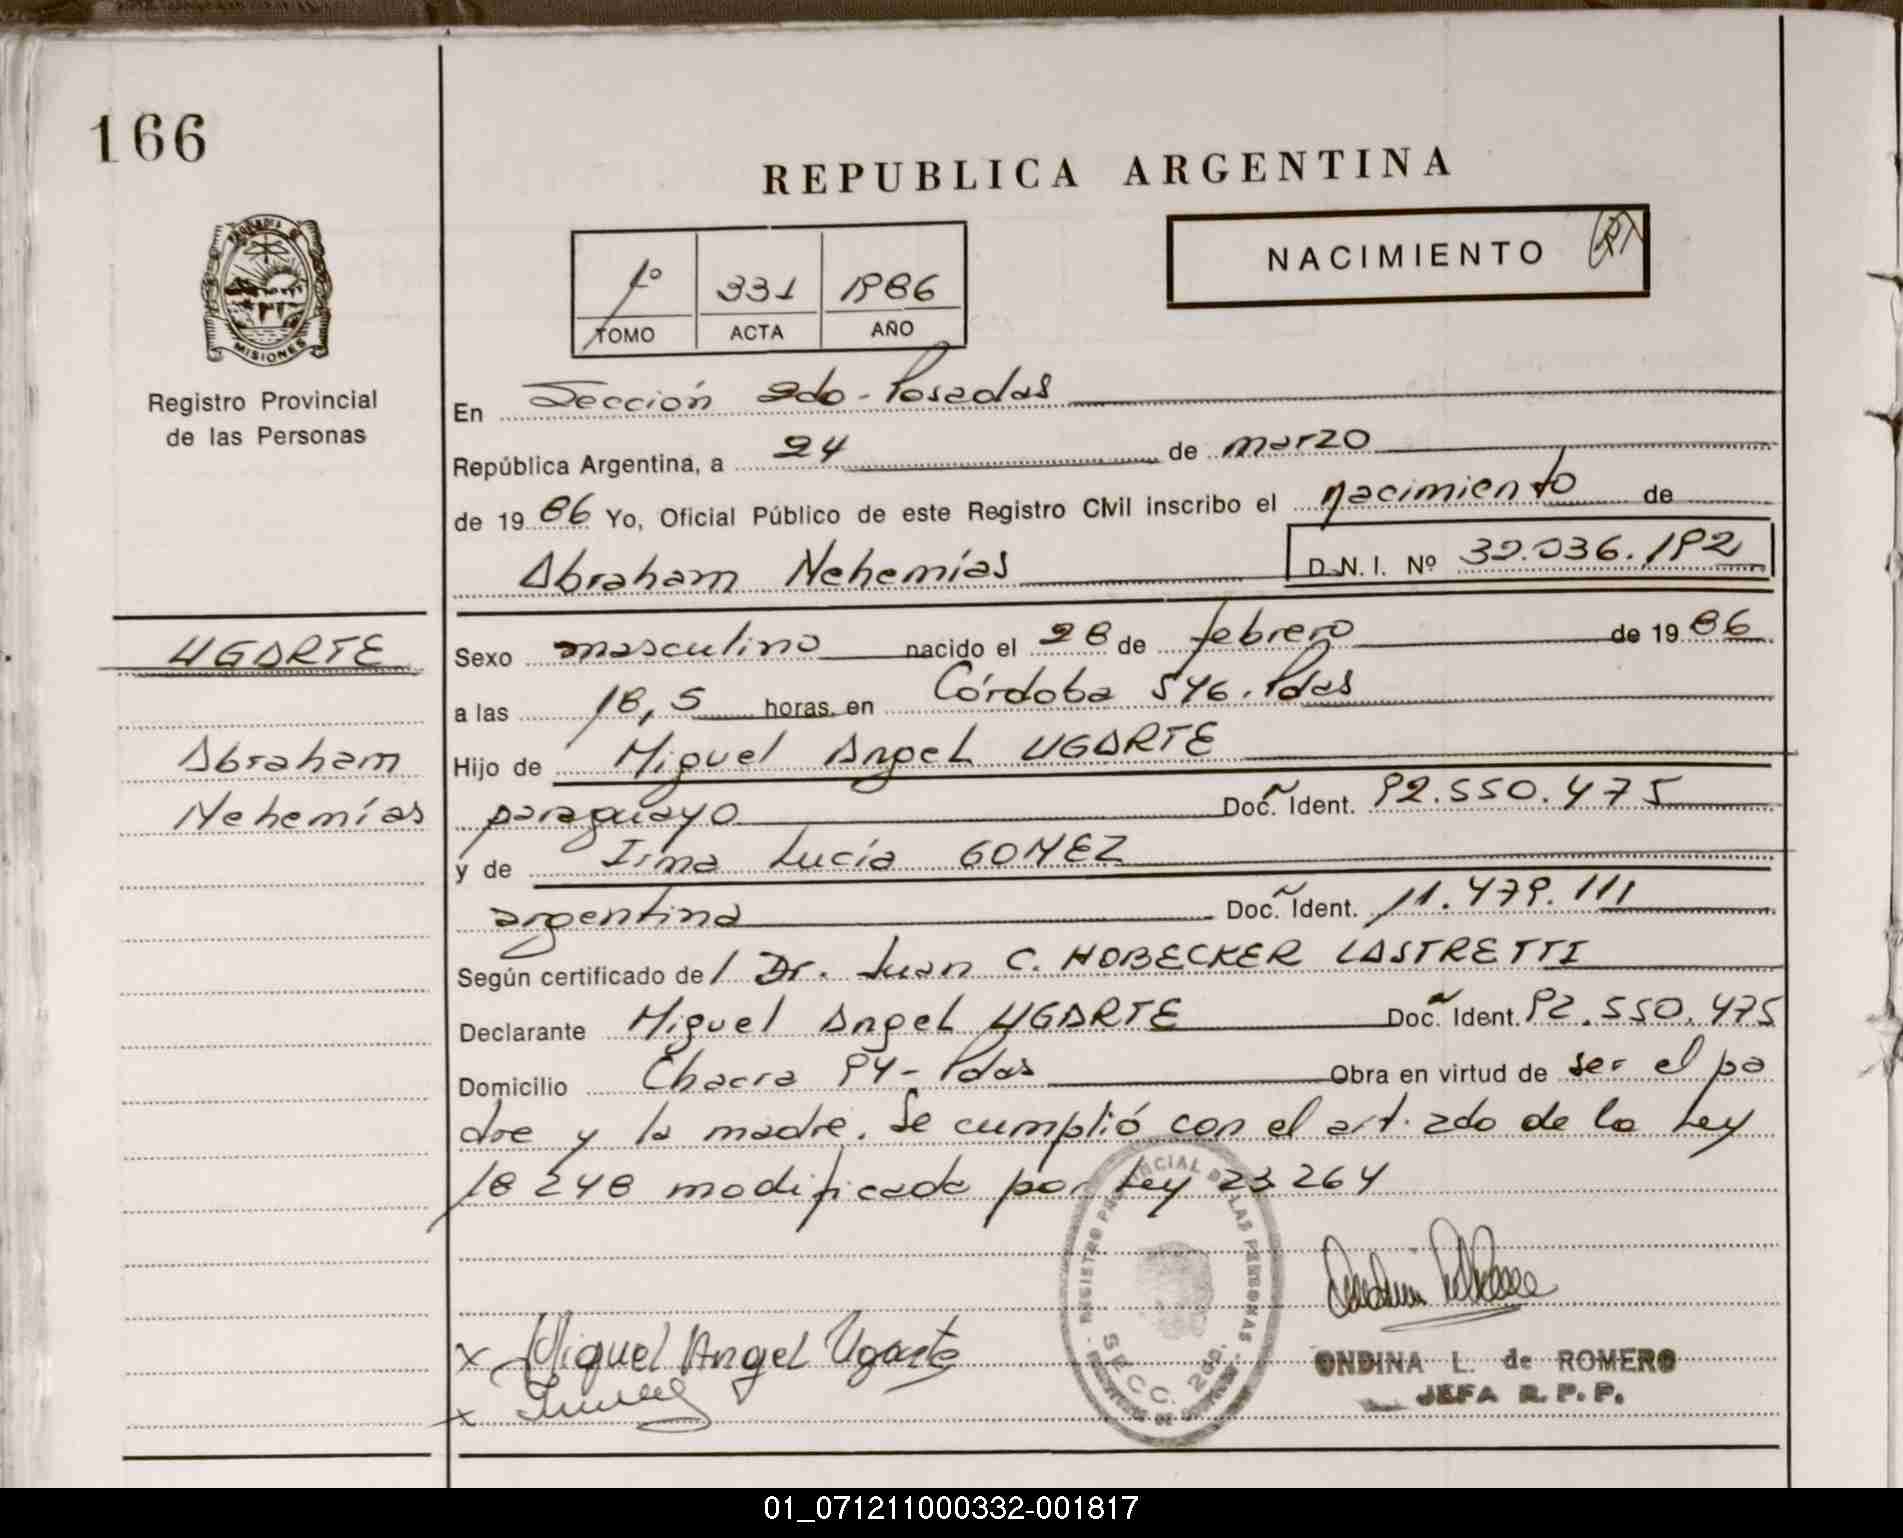 166
REPUBLICA ARGENTINA
1º 331 1986
TOMO ACTA AÑO
NACIMIENTO
MISIONES
Registro Provincial
de las Personas
En Sección 2do - Posadas
República Argentina, a 24 de marzo
de 1986 Yo, Oficial Público de este Registro Civil inscribo el nacimiento de
Abraham Nehemías D.N.I. Nº 32.036.192
UGARTE
Abraham
Nehemías
Sexo masculino nacido el 28 de febrero de 1986
a las 18,5 horas en Córdoba 546. Pdas
Hijo de Miguel Angel UGARTE
paraguayo Doc. Ident. 92.550.475
y de Irma Lucía GOMEZ
argentina Doc. Ident. 11.479.111
Según certificado del Dr. Juan C. HOBECKER LASTRETTI
Declarante Miguel Angel UGARTE Doc. Ident. 92.550.475
Domicilio Chacra 94 - Pdas Obra en virtud de ser el pa
dre y la madre. Se cumplió con el art. 2do de la Ley
18248 modificada por Ley 23264
REGISTRO PROVINCIAL DE LAS PERSONAS
SECC. 2da.
x Miguel Angel Ugarte
x
ONDINA L. de ROMERO
JEFA R.P.P.
01_071211000332-001817